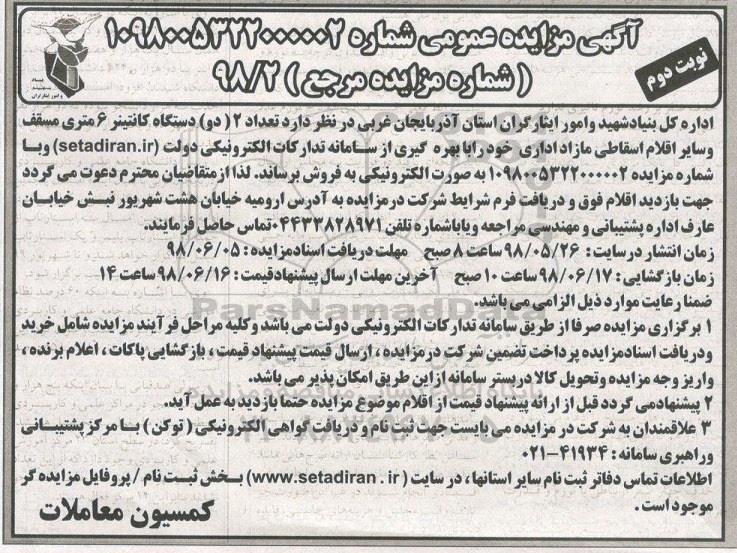 آگهی مزایده عمومی شماره ۱۰۹۸۰۰۵۳۲۲۰۰۰۰۰۲
( شماره مزایده مرجع ) ۹۸/۲
نوبت دوم
اداره کل بنیاد شهید وامور ایثارگران استان آذربایجان غربی در نظر دارد تعداد ۲ ( دو) دستگاه کانتینر ۶ متری مسقف
وسایر اقلام اسقاطی مازاد اداری خود را با بهره گیری از سامانه تدارکات الکترونیکی دولت (setadiran.ir) وبا
شماره مزایده ۱۰۹۸۰۰۵۳۲۲۰۰۰۰۰۲ به صورت الکترونیکی به فروش برساند. لذا از متقاضیان محترم دعوت می گردد
جهت بازدید اقلام فوق و دریافت فرم شرایط شرکت در مزایده به آدرس ارومیه خیابان هشت شهریور نبش خیابان
عارف اداره پشتیبانی و مهندسی مراجعه ویا باشماره تلفن ۰۴۴۳۳۸۲۸۹۷۱ تماس حاصل فرمایند.
زمان انتشار در سایت : ۹۸/۰۵/۲۶ ساعت ۸ صبح مهلت دریافت اسناد مزایده : ۹۸/۰۶/۰۵
زمان بازگشایی : ۹۸/۰۶/۱۷ ساعت ۱۰ صبح آخرین مهلت ارسال پیشنهاد قیمت : ۹۸/۰۶/۱۶ ساعت ۱۴
ضمنا رعایت موارد ذیل الزامی می باشد.
۱ برگزاری مزایده صرفا از طریق سامانه تدارکات الکترونیکی دولت می باشد و کلیه مراحل فرآیند مزایده شامل خرید
و دریافت اسناد مزایده پرداخت تضمین شرکت در مزایده ، ارسال قیمت پیشنهاد قیمت ، بازگشایی پاکات ، اعلام برنده ،
واریز وجه مزایده و تحویل کالا در بستر سامانه از این طریق امکان پذیر می باشد.
۲ پیشنهاد می گردد قبل از ارائه پیشنهاد قیمت از اقلام موضوع مزایده حتما بازدید به عمل آید.
۳ علاقمندان به شرکت در مزایده می بایست جهت ثبت نام و دریافت گواهی الکترونیکی ( توکن ) با مرکز پشتیبانی
وراهبری سامانه : ۴۱۹۳۴-۰۲۱
اطلاعات تماس دفاتر ثبت نام سایر استانها ، در سایت ( www.setadiran.ir) بخش ثبت نام / پروفایل مزایده گر
موجود است .
کمسیون معاملات
ParsNamadData